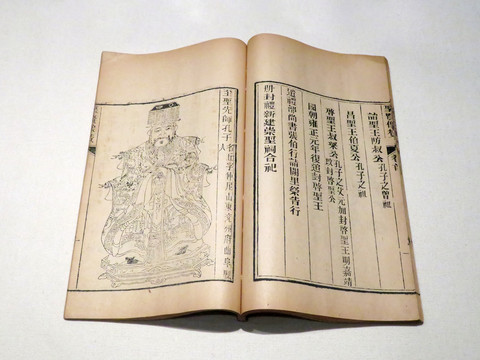 詒聖王防叔公孔子之曾祖
昌聖王伯夏公孔子之祖
啓聖王叔梁公孔子之父元加封啓聖王明嘉靖
改封啓聖公
國朝雍正元年復追封啓聖王
遣禮部尚書張伯行詣闕里祭告行
冊封禮新建崇聖祠合祀
至聖先師孔子
名丘字仲尼山東兗州府曲阜縣
人